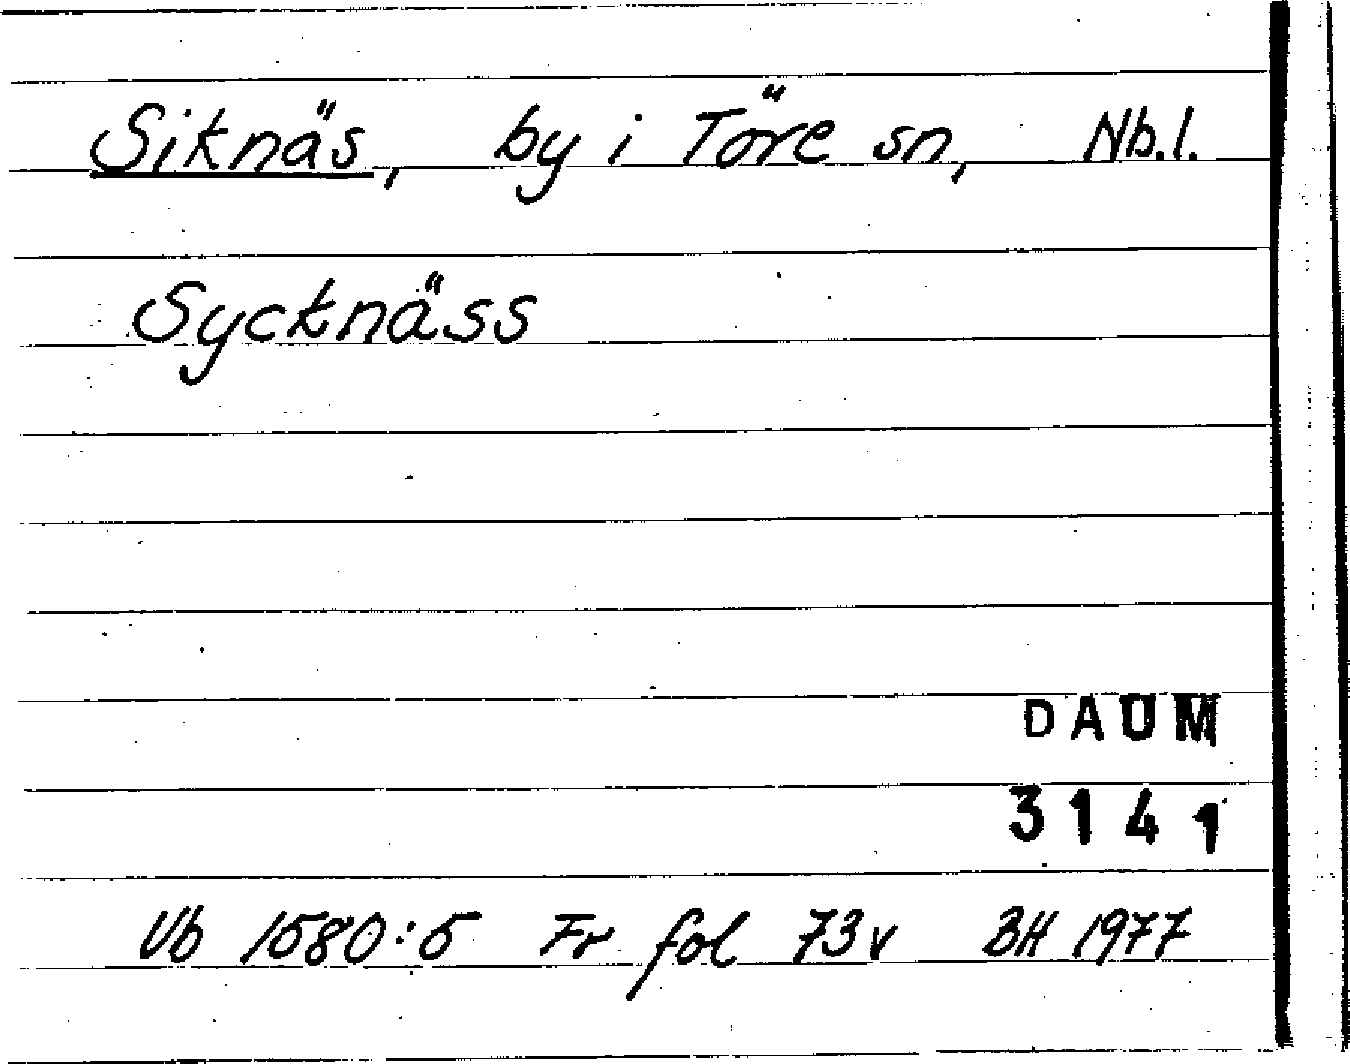 Siknäs, by i Töre sn, Nb.l.
Sycknäss
DAUM
3141
Vb 1580:5 Fr fol 73v BH 1977